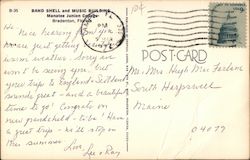 B-35 BAND SHELL and MUSIC BUILDING
Manatee Junior College
Bradenton, Florida
10¢
Hi
Nice hearing from you
We are just getting some
warm weather. Sorry we
won't be seeing you but
your trip to England & Scotland
sounds great - and a beautiful
time to go! Congrats on
new grandchild - to be! Have
a great trip - we'll stop in
this summer.
Love,
Lee & Ray
POST CARD
Mr. Mrs Hugh McFarlane
South Harpswell
Maine
04079